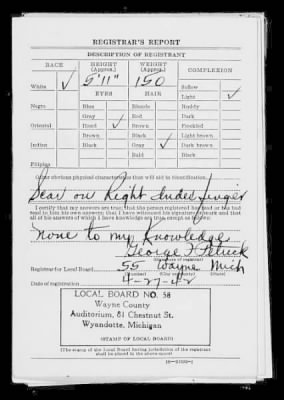 REGISTRAR'S REPORT
DESCRIPTION OF REGISTRANT
RACE HEIGHT (Approx.) WEIGHT (Approx.) COMPLEXION
White ✓ 5'11" 150 Sallow
EYES HAIR Light ✓
Negro Blue Blonde Ruddy
Gray Red Dark
Oriental Hazel ✓ Brown Freckled
Brown Black ✓ Light brown
Indian Black Gray Dark brown
Bald Black
Filipino
Other obvious physical characteristics that will aid in identification
Scar on Right Index finger
I certify that my answers are true; that the person registered has read or has had
read to him his own answers; that I have witnessed his signature or mark and that
all of his answers of which I have knowledge are true, except as follows:
None to my Knowledge
George
(Signature of registrar)
Registrar for Local Board 55 Wayne Mich
(Number) (City or county) (State)
Date of registration 4-27-42
LOCAL BOARD NO. 58
Wayne County
Auditorium, 81 Chestnut St.
Wyandotte, Michigan
(STAMP OF LOCAL BOARD)
(The stamp of the Local Board having jurisdiction of the registrant
shall be placed in the above space)